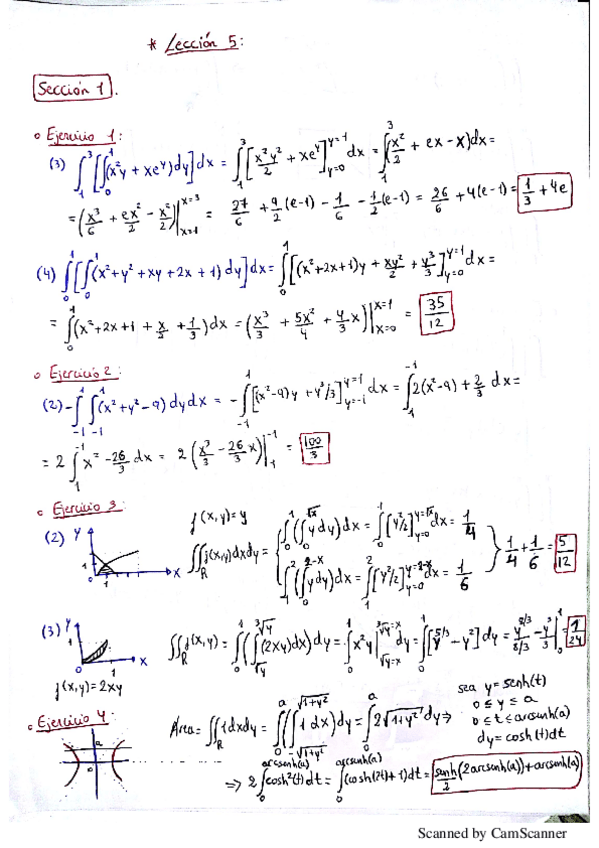 * Lección 5:
Sección 1.
o Ejercicio 1:
(3) ∫₁³ [∫₀¹ (x²y + xe^y) dy] dx = ∫₁³ [x²y²/2 + xe^y]_{y=0}^{y=1} dx = ∫₁³ (x²/2 + ex - x) dx =
= (x³/6 + ex²/2 - x²/2)|_{x=1}^{x=3} = 27/6 + 9/2 (e-1) - 1/6 - 1/2 (e-1) = 26/6 + 4(e-1) = 1/3 + 4e
(4) ∫₀¹ [∫₀¹ (x² + y² + xy + 2x + 1) dy] dx = ∫₀¹ [(x²+2x+1)y + xy²/2 + y³/3]_{y=0}^{y=1} dx =
= ∫₀¹ (x² + 2x + 1 + x/2 + 1/3) dx = (x³/3 + 5x²/4 + 4/3 x)|_{x=0}^{x=1} = 35/12
o Ejercicio 2:
(2) - ∫₋₁¹ ∫₋₁¹ (x² + y² - 9) dy dx = - ∫₋₁¹ [(x²-9)y + y³/3]_{y=-1}^{y=1} dx = ∫₁⁻¹ 2(x²-9) + 2/3 dx =
= 2 ∫₁⁻¹ x² - 26/3 dx = 2 (x³/3 - 26/3 x)|₁⁻¹ = 100/3
o Ejercicio 3:
(2) y 1 0 1 x f(x,y) = y
∬_R f(x,y) dx dy = { ∫₀¹ (∫₀^{√x} y dy) dx = ∫₀¹ [y²/2]_{y=0}^{y=√x} dx = 1/4
∫₁² (∫₀^{2-x} y dy) dx = ∫₁² [y²/2]_{y=0}^{y=2-x} dx = 1/6 } 1/4 + 1/6 = 5/12
(3) y 1 0 1 x ∬_R f(x,y) = ∫₀¹ (∫_{√y}^{∛y} (2xy) dx) dy = ∫₀¹ x²y |_{√y=x}^{∛y=x} dy = ∫₀¹ [y^{5/3} - y²] dy = y^{8/3}/(8/3) - y³/3 |₀¹ = 1/24
f(x,y) = 2xy
o Ejercicio 4:
a 0 Área = ∬_R 1 dx dy = ∫₀^a (∫_{-√(1+y²)}^{√(1+y²)} 1 dx) dy = ∫₀^a 2√(1+y²) dy ⇒
sea y = senh(t)
0 ≤ y ≤ a
0 ≤ t ≤ arcsenh(a)
dy = cosh(t) dt
⇒ 2 ∫₀^{arcsenh(a)} cosh²(t) dt = ∫₀^{arcsenh(a)} (cosh(2t) + 1) dt = senh/2 (2arcsenh(a)) + arcsenh(a)
Scanned by CamScanner